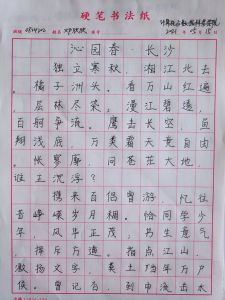 硬笔书法纸
沁园春·长沙
独立寒秋，湘江北去
，橘子洲头。看万山红遍，
层林尽染；漫江碧透，
百舸争流。鹰击长空，鱼
翔浅底，万类霜天竞自由
。怅寥廓，问苍茫大地，
谁主沉浮？
携来百侣曾游，忆往
昔峥嵘岁月稠。恰同学少
年，风华正茂；书生意气
，挥斥方遒。指点江山，
激扬文字，粪土当年万户
侯。曾记否，到中流击水